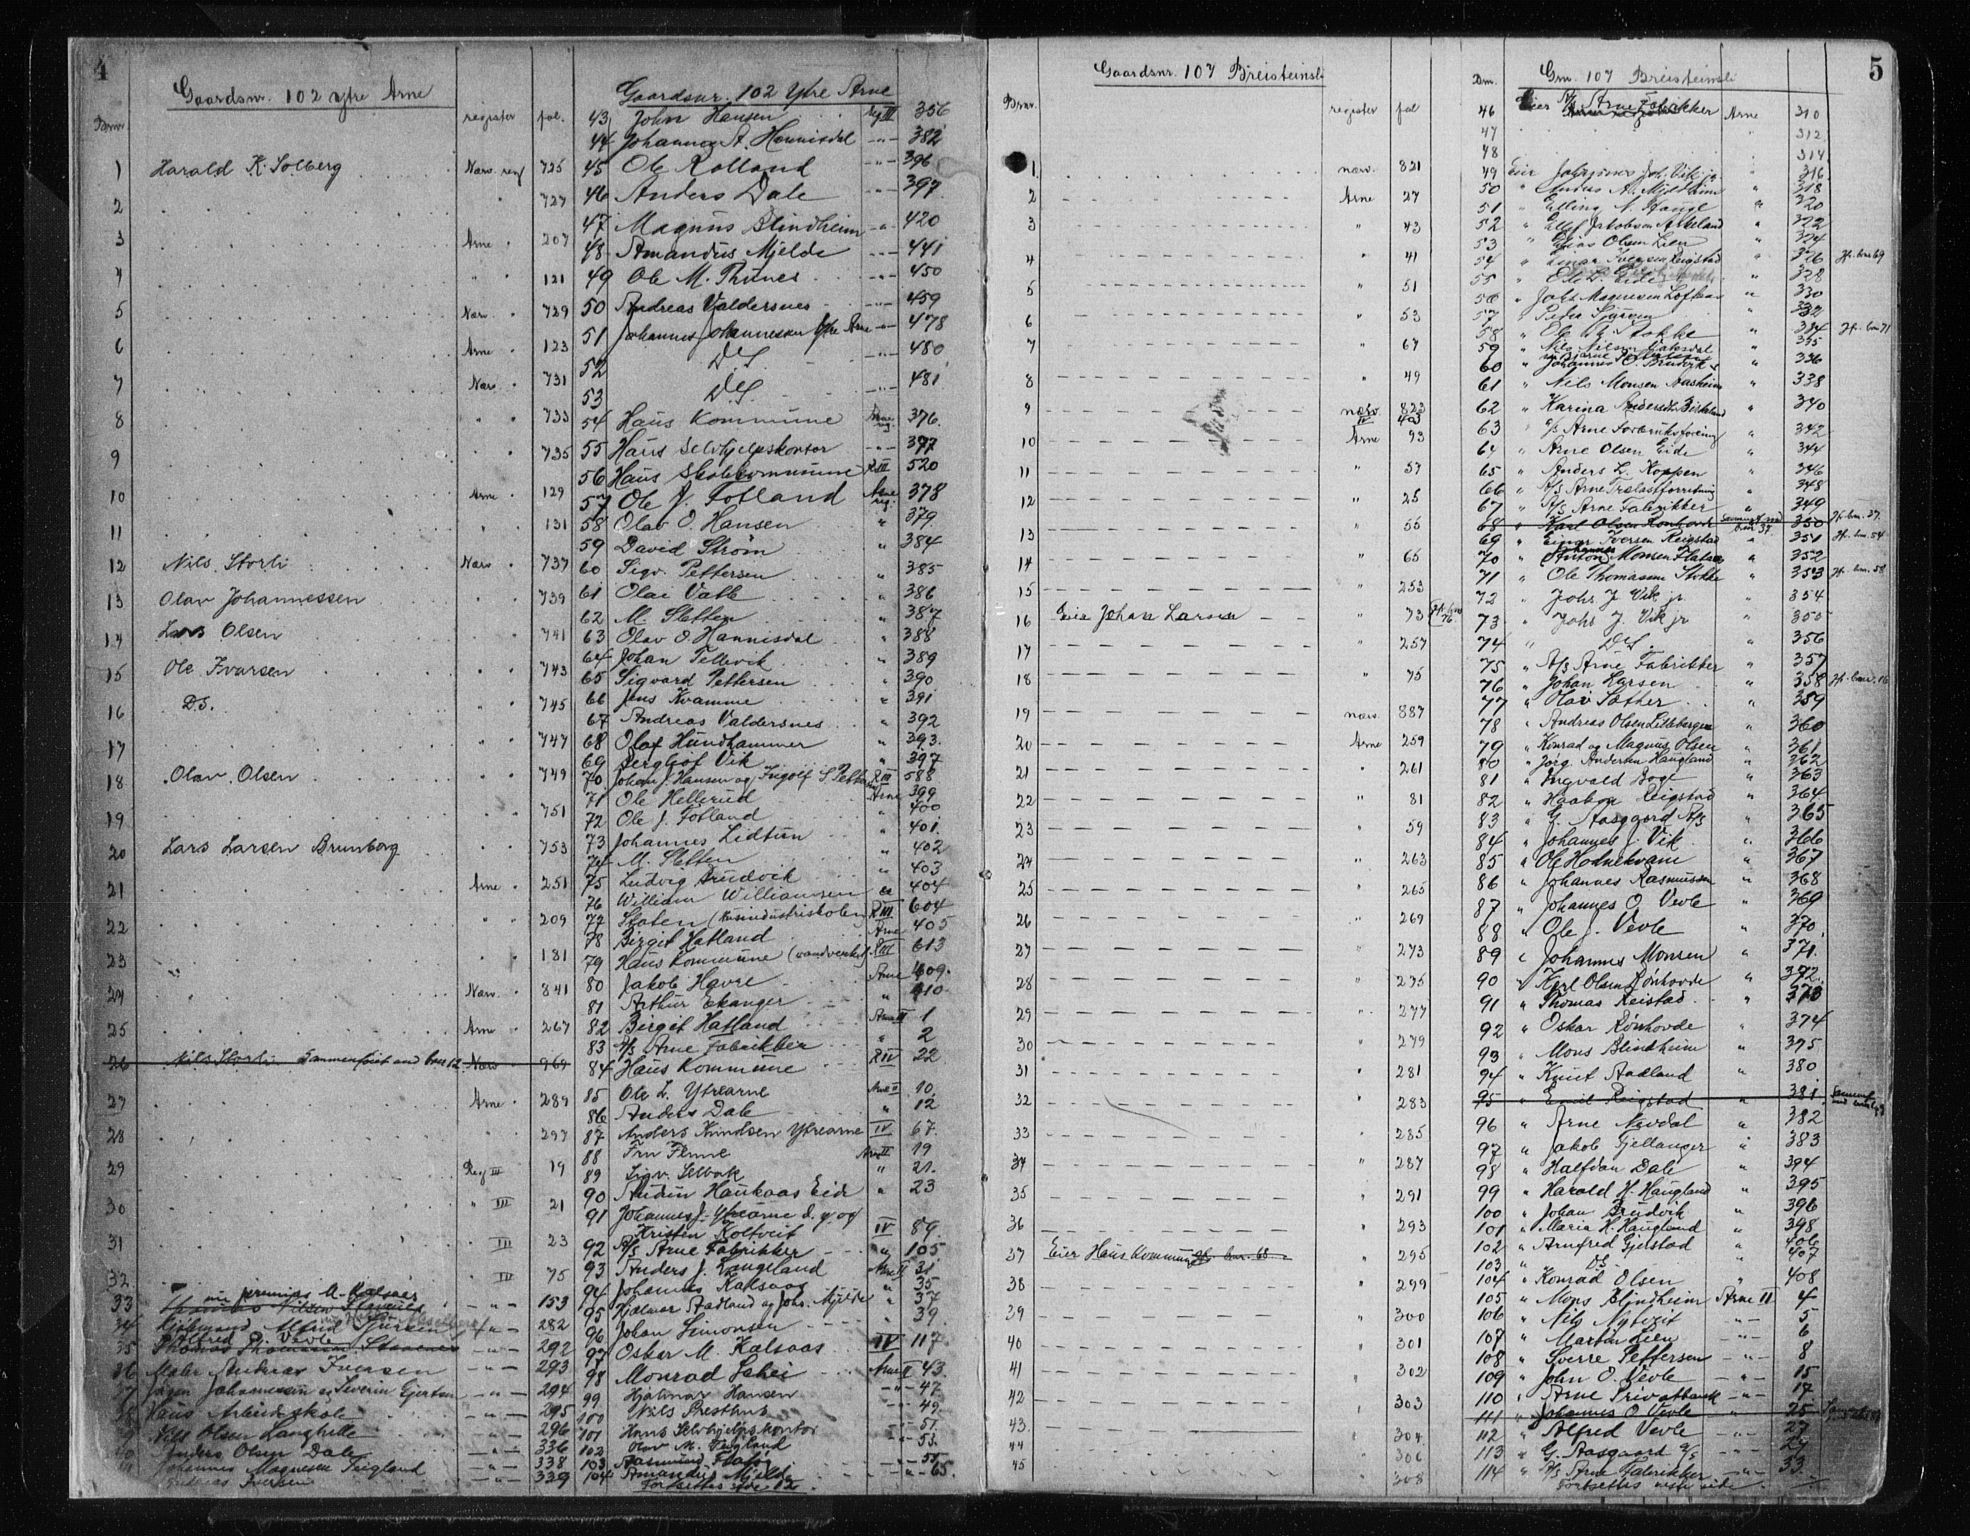 4
Gaardsnr. 102 ytre Arne
Brnr. register fol.
1 Harald K. Solberg Narv. reg 725
2 " 727
3 Arne " 207
4 " " 121
5 Narv. " 729
6 Arne " 123
7 Narv. " 731
8 " " 733
9 " 735
10 Arne " 129
11 " " 131
12 Nils Storli Narv " 737
13 Olav Johannessen " " 739
14 Lars Olsen " " 741
15 Ole Ivarsen " " 743
16 DS. " " 745
17 " " 747
18 Olav Olsen " " 749
19 " " 751
20 Lars Larsen Brunborg " " 753
21 Arne " 251
22 " " 209
23 " " 181
24 Narv. " 841
25 Arne " 267
26 Nils Storli Sammenføiet med bnr 12 Narv 969
27 Arne " 289
28 " 297
29 Reg III 19
30 " III 21
31 " III 23
32 " III 75
33 M. Kalsaas 153
34 282
35 Alfred P. Vevle 292
36 Maler Andreas Iversen 293
37 Johannessen og Severin Gjertsen 294
38 Haus Arbeidsskole 295
Nils Olsen Langhelle 296
Anders Olsen Dale 336
Johannes Magnesen Teigland 338
Andreas Iversen 339
Gaardsnr. 102 Ytre Arne
43 John Hansen Reg III 356
44 Johannes A. Hannisdal 382
45 Ole Rolland 396
46 Anders Dale 397
47 Magnus Blindheim 420
48 Amandus Mjelde 441
49 Ole M. Thunes 450
50 Andreas Valdersnes 459
51 Johannes Johannessen Ytre Arne 478
52 DS 480
53 DS 481
54 Haus Kommune Arne reg. 376
55 Haus Selvhjelpskontor 377
56 Haus Skolekommune R III 520
57 Ole J. Fotland Arne reg. 378
58 Olav O. Hansen " 379
59 David Strøm " 384
60 Sigv. Pettersen " 385
61 Olai Vatle " 386
62 M. Sletten " 387
63 Olav O. Hannisdal " 388
64 Johan Tellevik " 389
65 Sigvard Pettersen " 390
66 Jens Kvamme " 391
67 Andreas Valdersnes " 392
68 Olaf Hundhammer " 393
69 Berghof Vik " 397
70 Johan J. Hansen og Ingolf S Pettersen R III 588
71 Ole Hellerud Arne 399
72 Ole J. Fotland " 400
73 Johannes Lidtun " 401
74 M. Sletten " 402
75 Ludvig Bruvik " 403
76 William Williamsen " 404
77 Staten (Husindustriskolen) R III 604
78 Birgit Hatland Arne 405
79 Haus Kommune (vandverket) R III 613
80 Jakob Havre Arne 409
81 Arthur Ekanger " 410
82 Birgit Hatland Arne II 1
83 A/s Arne Fabrikker " 2
84 Haus Kommune R IV 22
85 Ole L. Ytrearne Arne II 10
86 Anders Dale " 12
87 Anders Knudsen Ytrearne IV 67
88 Fru Fenne Arne II 19
89 Sigv. Selvik " 21
90 Audun Haukaas Eide " 23
91 Johannes J. Ytrearne d. y. og
Kristen Holtveit IV 89
92 A/s Arne Fabrikker " 105
93 Anders J. Langeland Arne II 31
94 Johannes Kalsaas " 35
95 Hjalmar Aadland og Johs. Mjelde " 37
96 Johan Simonsen " 39
97 Oskar M. Kalsaas IV 117
98 Monrad Schei Arne II 43
99 Hjalmar Hansen 47
100 Nils Presthus 49
101 Haus Selvhjelpskontor 51
102 Olav M. Teigland 53
103 Rasmus Flatøy 55
104 Amandus Mjelde 65
Fortsettes side 12.
Gaardsnr. 107 Breisteinsli
Brnr. register fol
1 narv. 821
2 Arne 27
3 " 43
4 " 41
5 " 51
6 " 53
7 " 67
8 " 49
9 narv. 823
IV 403
10 Arne 93
11 " 57
12 " 25
13 " 55
14 " 65
15 " 253
16 Eier Johan Larsen " 73
17 " 257
18 " 75
19 narv. 887
20 Arne 259
21 " 261
22 " 81
23 " 59
24 " 263
25 " 265
26 " 269
27 " 273
28 " 275
29 " 277
30 " 279
31 " 281
32 " 283
33 " 285
34 " 287
35 " 291
36 " 293
37 Eier Haus Kommune jfr. bnr. 68 " 295
38 " 299
39 " 300
40 " 301
41 " 302
42 " 303
43 " 304
44 306
45 308
5
Bnr. Gnr. 107 Breisteinsli
46 Eier A/s Arne Fabrikker Arne 310
47 " 312
48 " 314
49 Eier Johannes Joh. Vik jr " 316
50 " Anders M. Mjeldheim " 318
51 " Elling N. Hauge " 320
52 " Ellef Jakobsen Askeland " 322
53 " Elias Olsen Lien " 324
54 " Einar Iversen Reigstad " 326 Jfr. bnr 69
55 " Ole L. Eide " 328
56 " Johs Magnesen Loftaas " 330
57 " Peder 332
58 " Ole 334 Jfr. bnr 71
59 " Nils Nilsen Vaksdal " 335
60 " Johannes O. Bruvik " 336
61 " Nils Monsen Aasheim " 338
62 " Karina Andersen Birkeland " 340
63 " A/s Arne Forbruksforening " 342
64 " Arne Olsen Eide " 344
65 " Anders L. Koppen " 346
66 " A/s Arne Trelastforretning " 348
67 " A/s Arne Fabrikker " 349
68 " Karl Olsen Rønhovde Sammenf. med bnr 37 350 Jfr. bnr. 37
69 " Einar Iversen Reigstad " 351 Jfr. bnr. 54
70 " Johannes Monsen Flataas " 352
71 " Ole Thomassen Stokke " 353 Jfr. bnr. 58
72 " Johs J. Vik jr " 354
73 " Johs J. Vik jr 355
74 " DS " 356
75 " A/s Arne Fabrikker " 357
76 " Johan Larsen " 358 Jfr. bnr. 16
77 " Olav Sæther " 359
78 " Andreas Olsen Lillebergen " 360
79 " Konrad og Magnus Olsen " 361
80 " Jørg. Andersen Haugland " 362
81 " Ingvald Boge " 363
82 " Haakon Reigstad " 364
83 " G. Aasgaard A/s " 365
84 " Johannes J. Vik " 366
85 " Ole Hornekvam " 367
86 " Johannes Rasmussen " 368
87 " Johannes O Vevle " 369
88 " Ole J. Vevle " 370
89 " Johannes Monsen " 371
90 " Karl Olsen Rønhovde " 372
91 " Thomas Reistad " 373
92 " Oskar Rønhovde " 374
93 " Mons Blindheim " 375
94 " Knut Aadland " 380
95 " Emil Reigstad " 381
96 " Arne Navdal " 382
97 " Jakob Gjellanger " 383
98 " Halfdan Dale " 394
99 " Harald H. Haugland " 395
100 " Johan Bruvik " 396
101 " Maria H. Haugland " 398
102 " Arnfred Gjelstad " 406
103 " DS. " 407
104 " Konrad Olsen " 408
105 " Mons Blindheim Arne II 4
106 " Nils Nytveit 5
107 " Martin Lien 6
108 " Sverre Pettersen 8
109 " John O. Vevle 15
110 " Arne Privatbank 17
111 " Johannes O Vevle 25
112 " Alfred Vevle 27
113 " G. Aasgaard A/s 29
114 " A/s Arne Fabrikker 33
Fortsettes neste side.